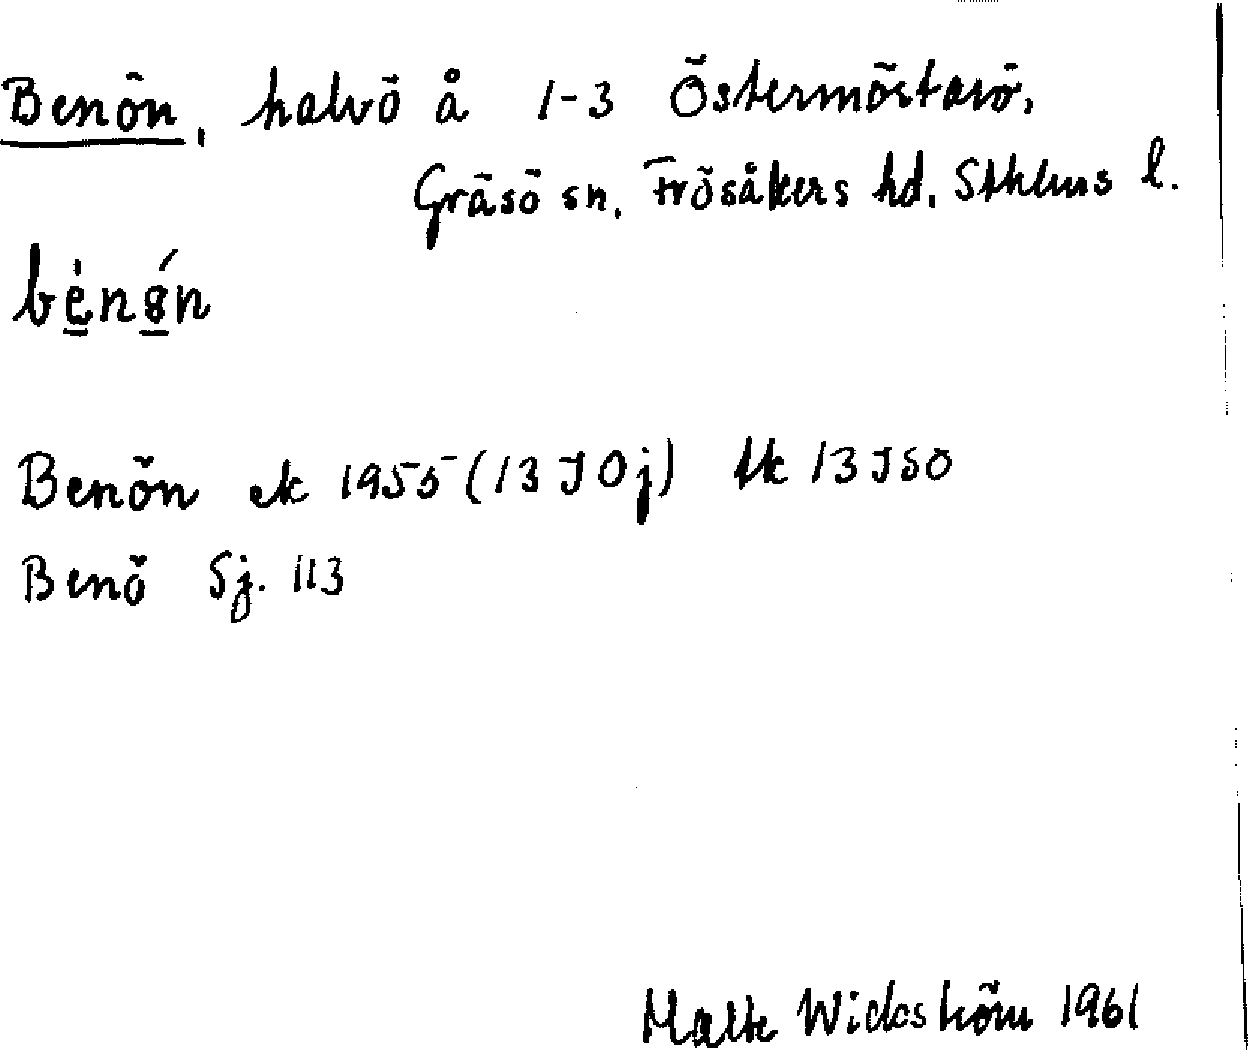 Benön, halvö å 1-3 Östermörtarö,
Gräsö sn, Frösåkers hd, Sthlms l.
Benön ek 1955 (13 J 0j) tk 13 J SO
Benö Sj. 113
Malte Widoström 1961